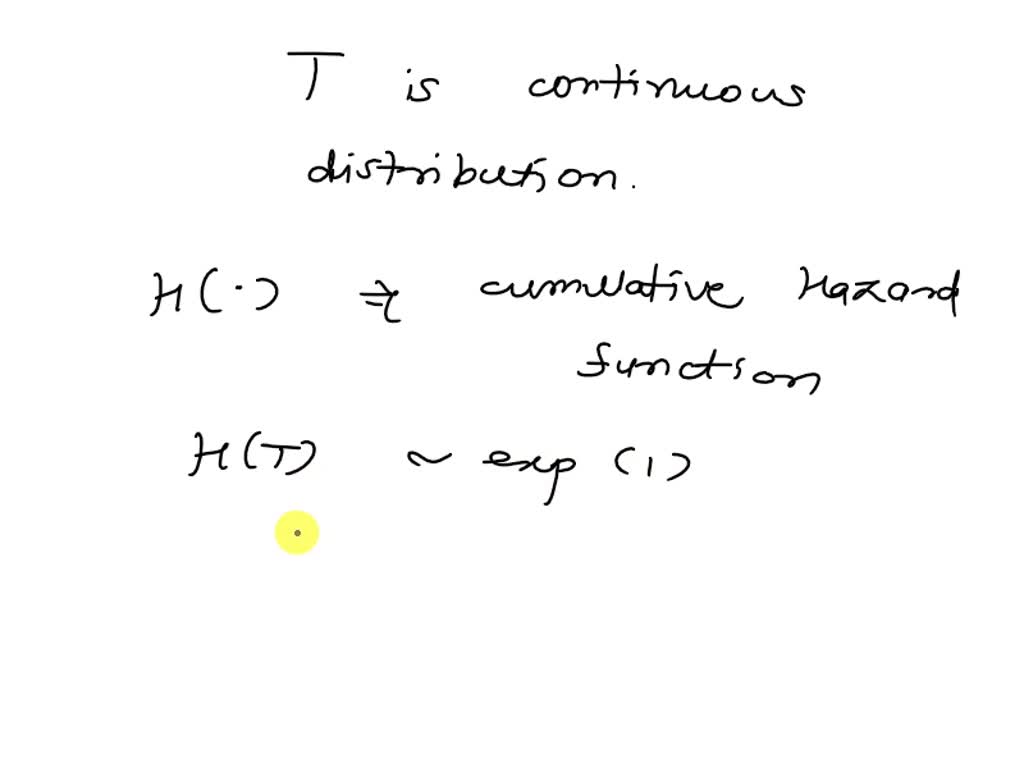 T is continuous
distribution.
H(·) ⇒ cumulative Hazard
function
H(T) ~ exp (1)